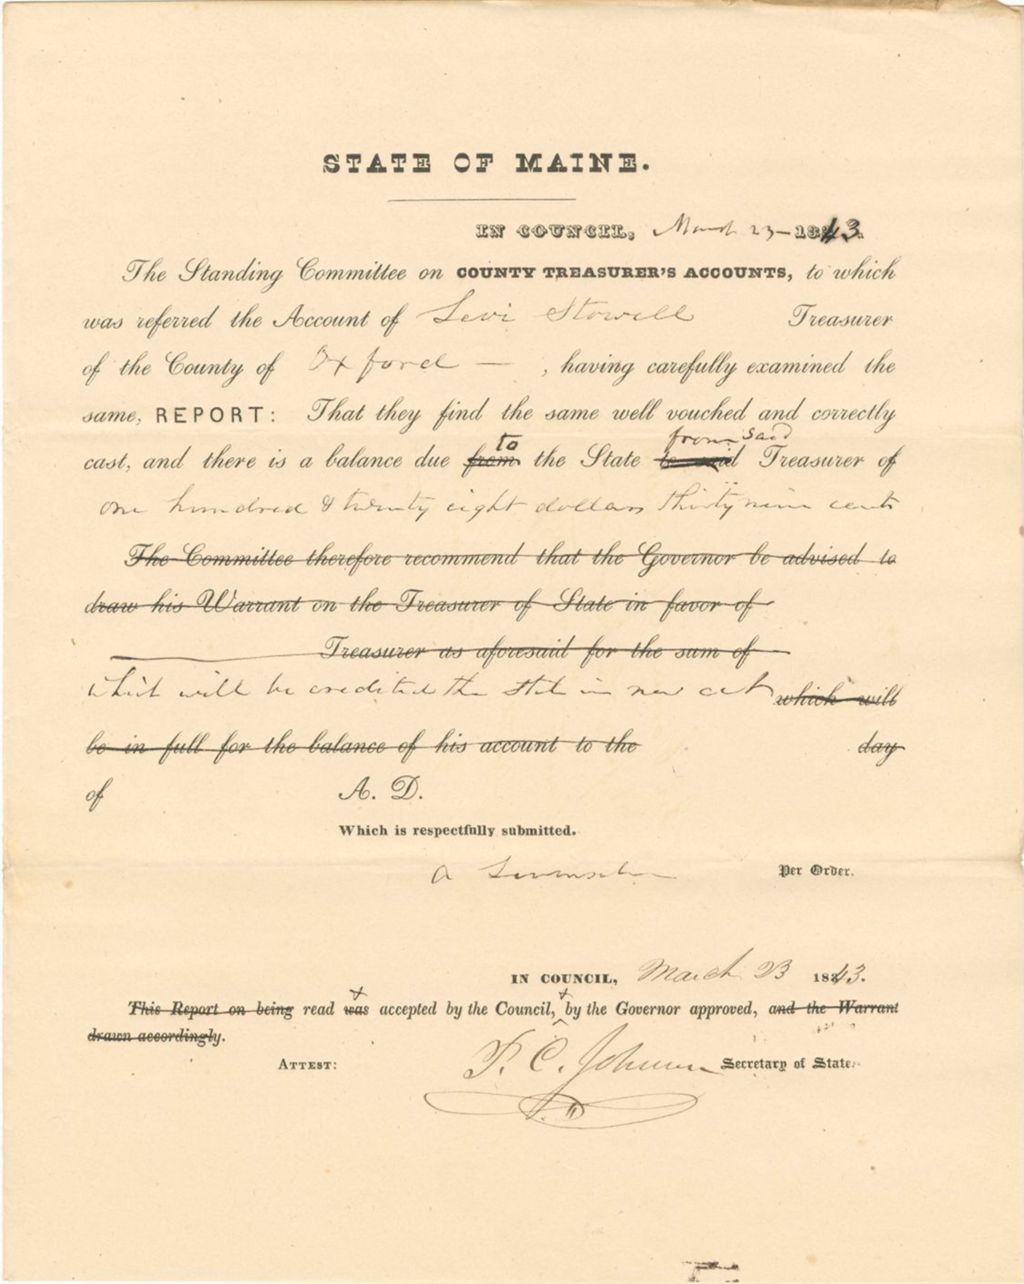 STATE OF MAINE.
IN COUNCIL, March 23 — 1843.
The Standing Committee on COUNTY TREASURER'S ACCOUNTS, to which
was referred the Account of Levi Stowell Treasurer
of the County of Oxford — , having carefully examined the
same, REPORT: That they find the same well vouched and correctly
to from said
cast, and there is a balance due from the State to said Treasurer of
one hundred & twenty eight dollars thirty nine cents
The Committee therefore recommend that the Governor be advised to
draw his Warrant on the Treasurer of State in favor of
Treasurer as aforesaid for the sum of
which will be credited the State in new act which will
be in full for the balance of his account to the day
of A. D.
Which is respectfully submitted.
A Per Order.
IN COUNCIL, March 23 1843.
This Report on being read was accepted by the Council, + by the Governor approved, and the Warrant
drawn accordingly.
ATTEST: P. C. Johnson Secretary of State.